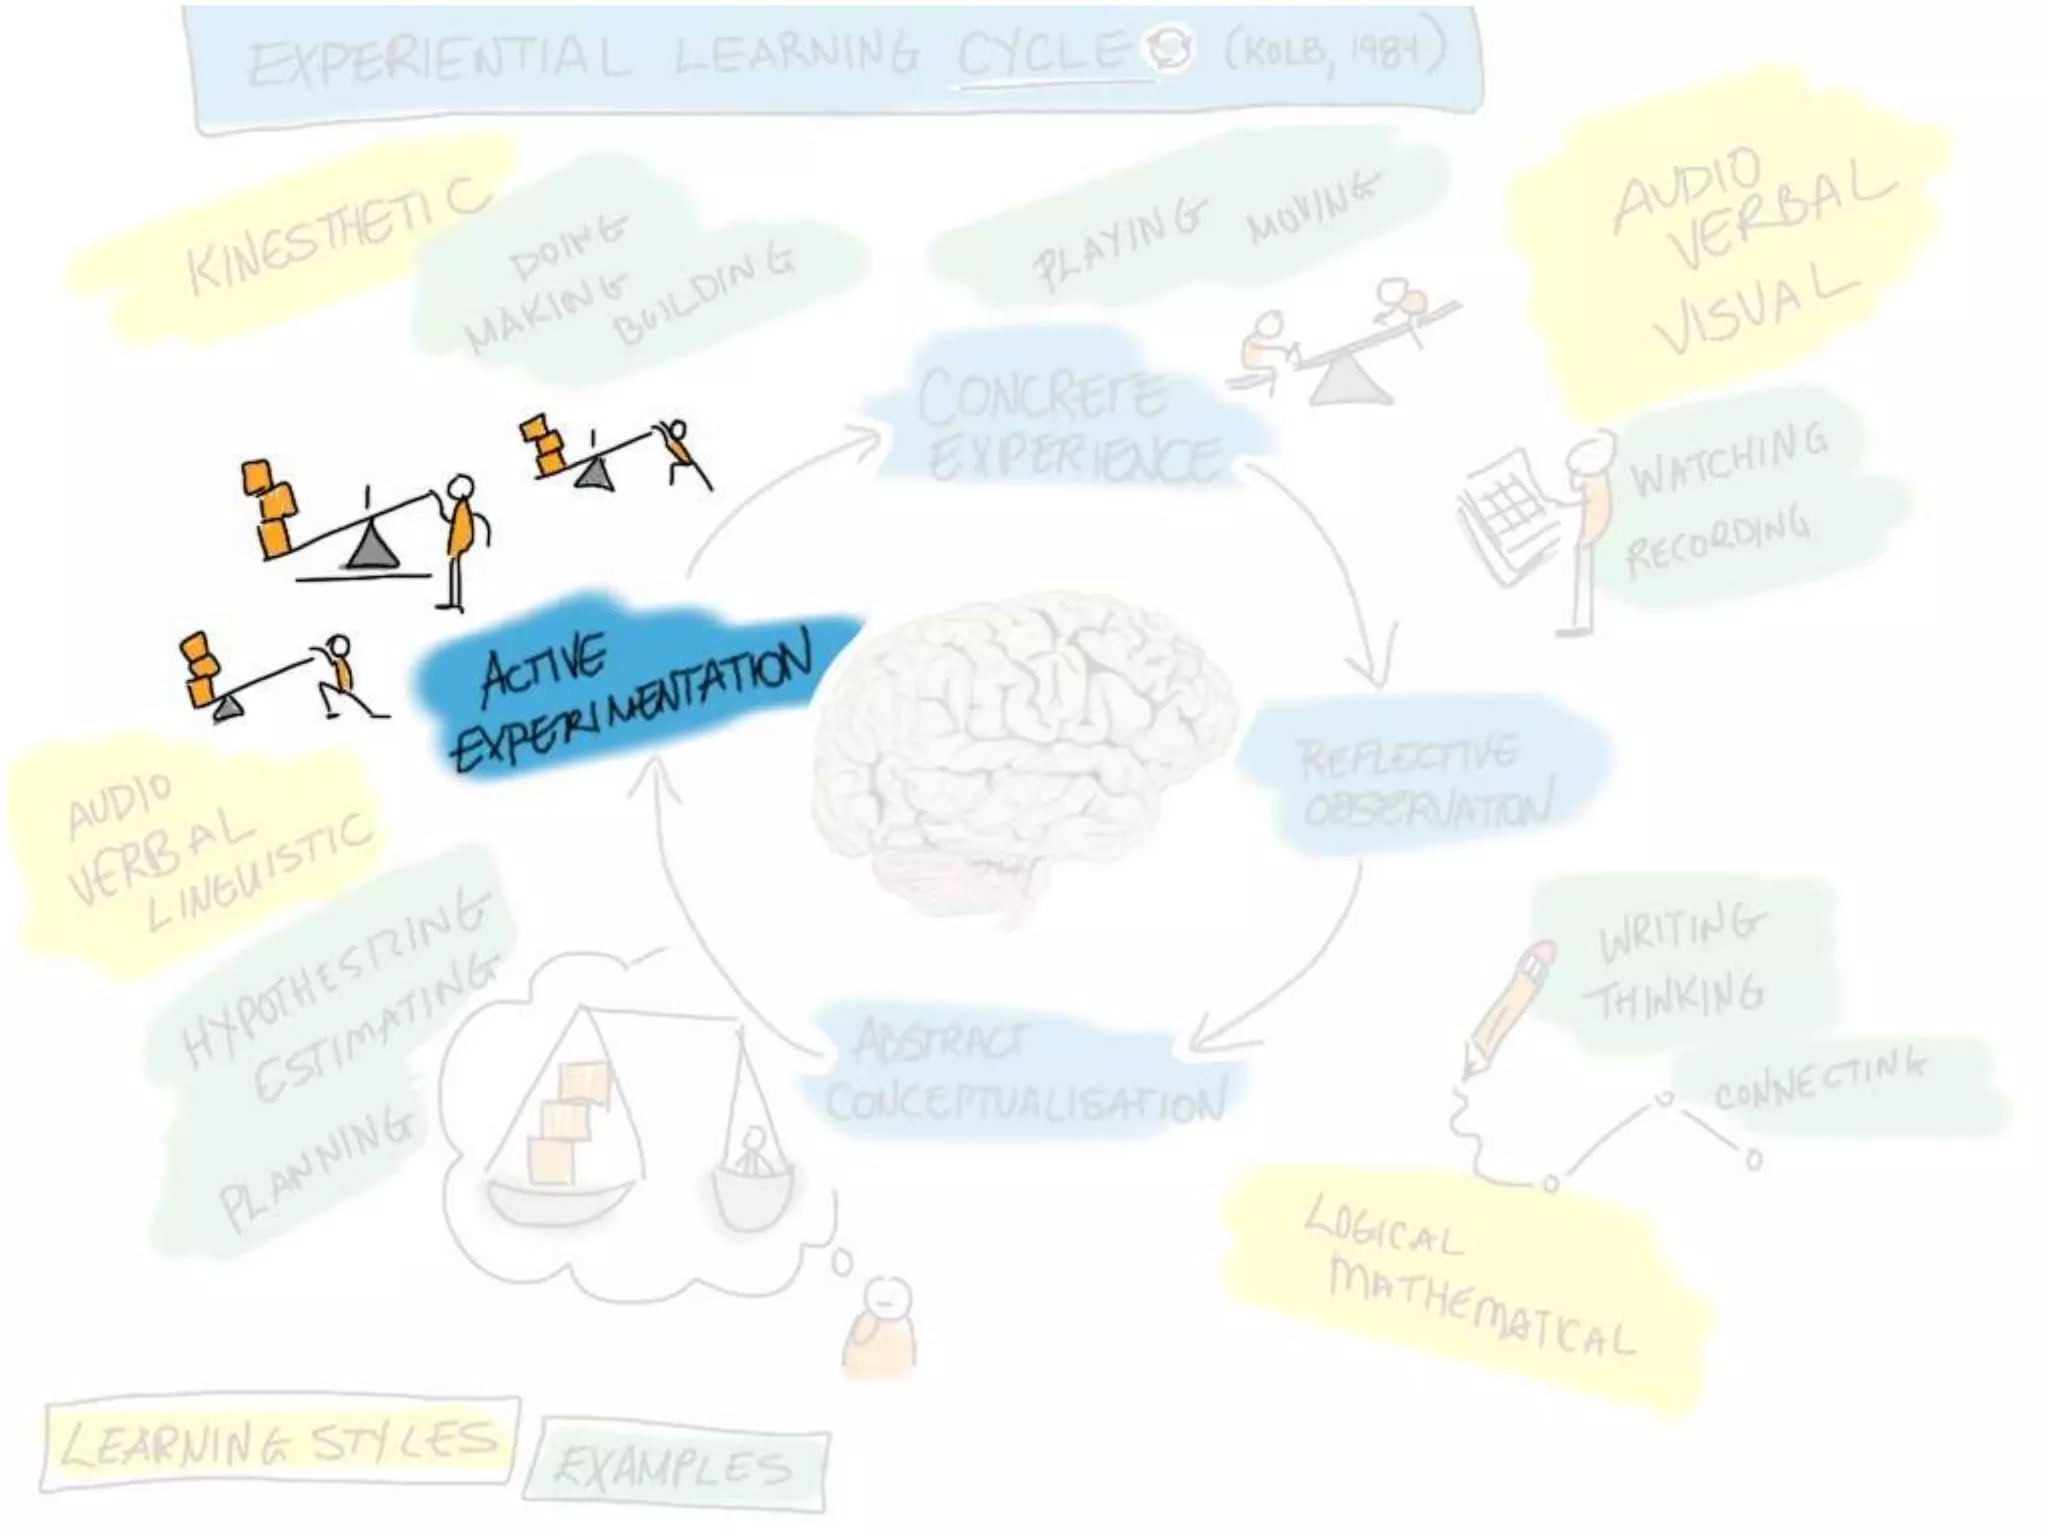 EXPERIENTIAL LEARNING CYCLE (KOLB, 1984)
KINESTHETIC
DOING
MAKING
BUILDING
PLAYING MOVING
AUDIO
VERBAL
VISUAL
CONCRETE
EXPERIENCE
WATCHING
RECORDING
ACTIVE
EXPERIMENTATION
REFLECTIVE
OBSERVATION
AUDIO
VERBAL
LINGUISTIC
HYPOTHESIZING
ESTIMATING
PLANNING
WRITING
THINKING
CONNECTING
ABSTRACT
CONCEPTUALISATION
LOGICAL
MATHEMATICAL
LEARNING STYLES
EXAMPLES